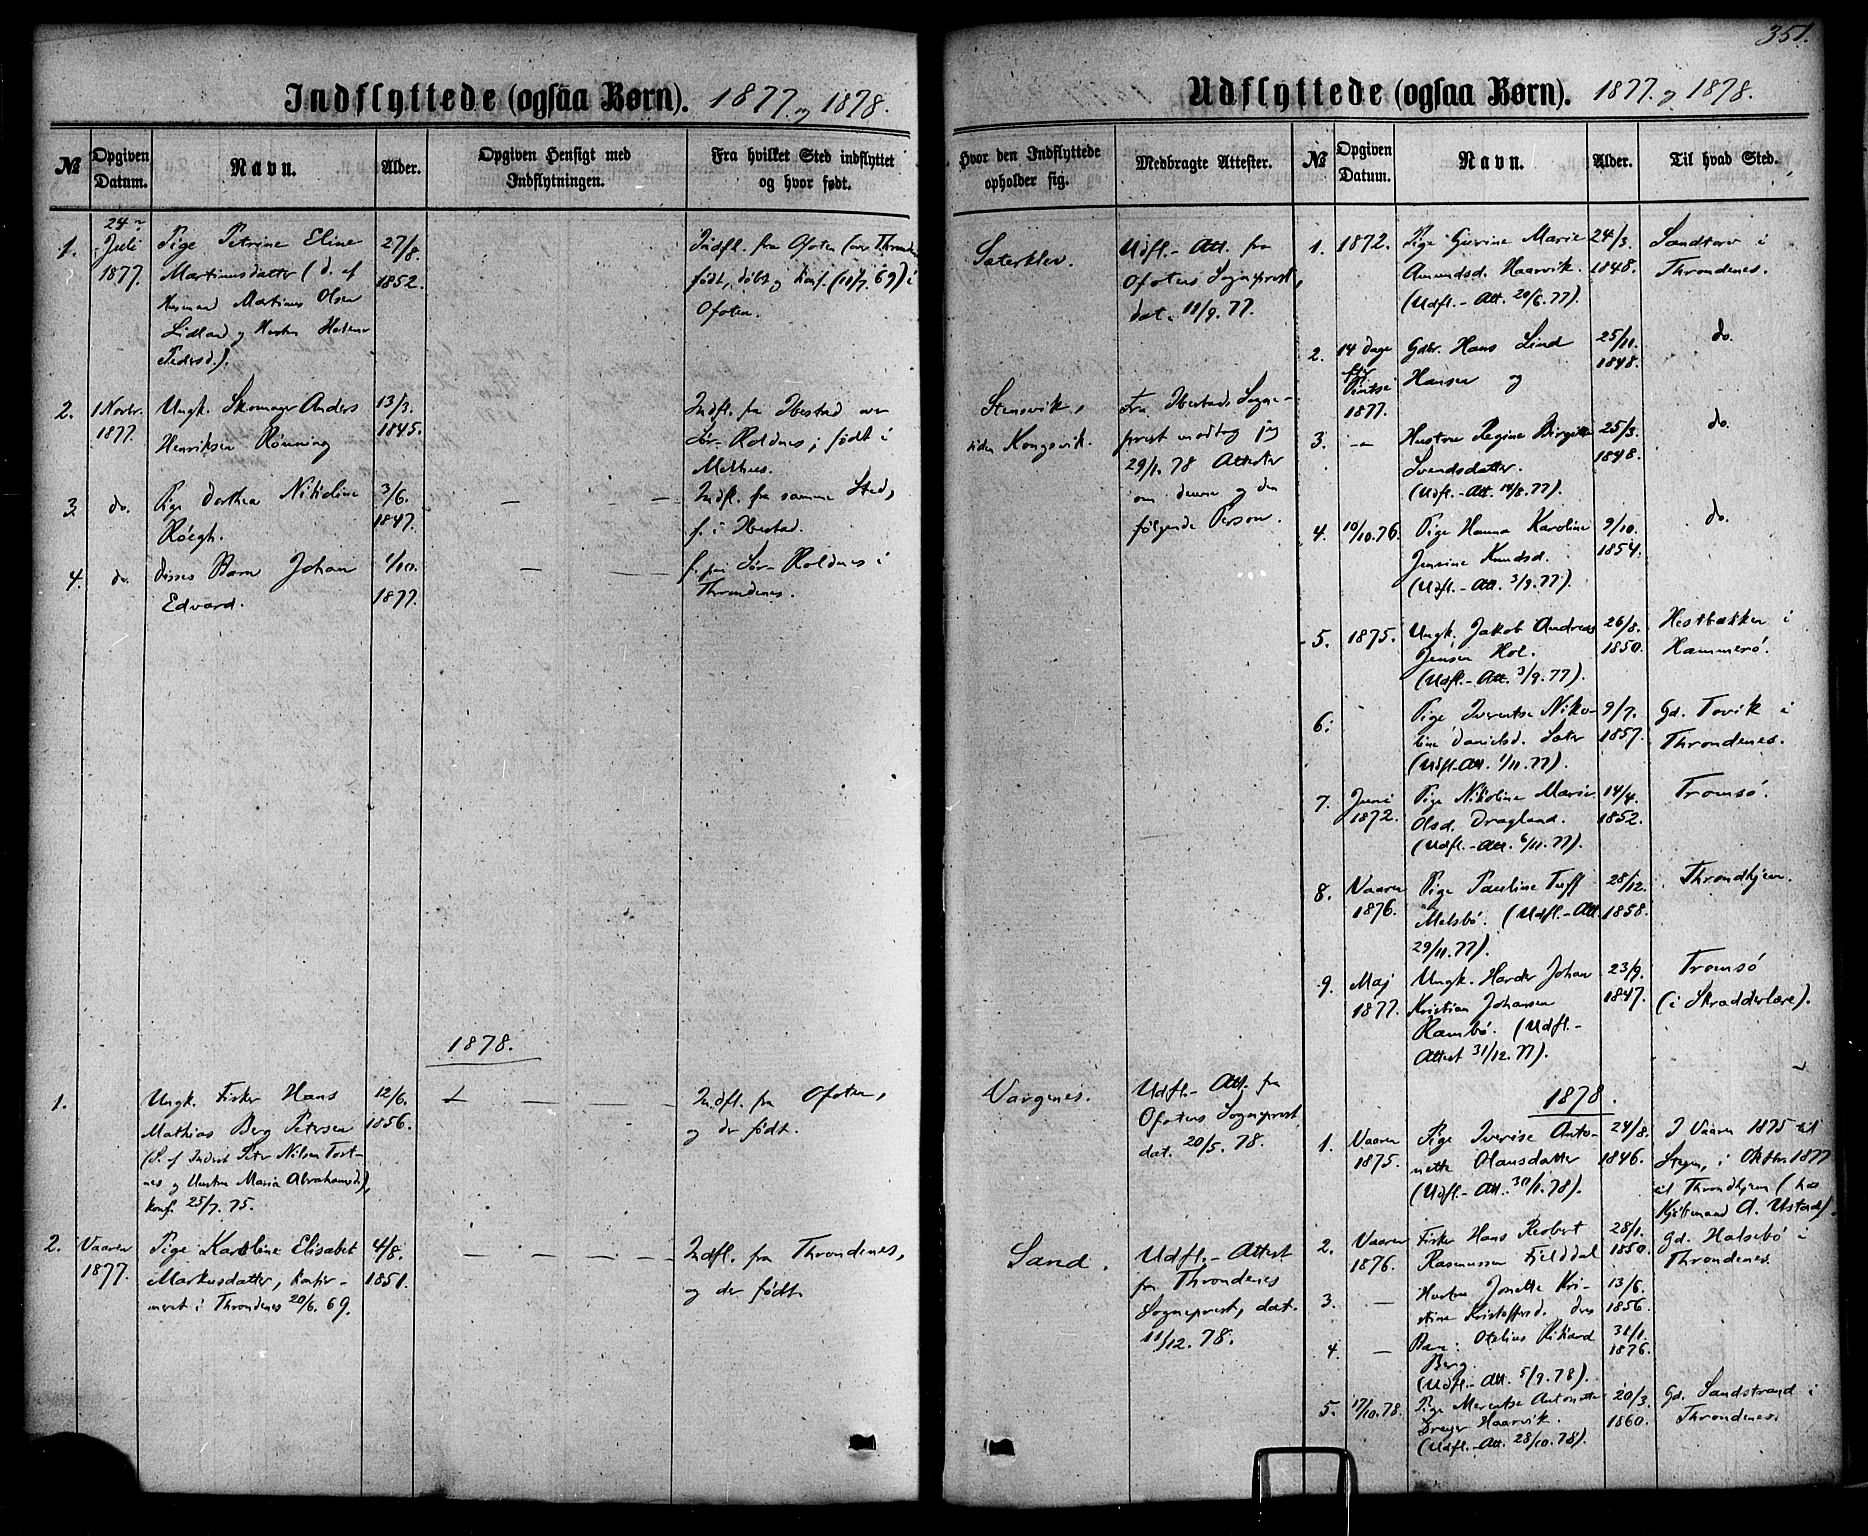 351.
Indflyttede (ogsaa Børn). 1877 og 1878.
№
Opgiven Datum.
Navn.
Alder.
Opgiven Hensigt med Indflytningen.
Fra hvilket Sted indflyttet og hvor født.
1.
24
Juli
1877.
Pige Petrine Eline
Martinusdatter (d. af
Husmand Martinus Olsen
Lidland og Hustru
Pedersd.).
27/8.
1852.
Indfl. fra Ofoten (over
født, døbt og konf. (11/7. 69) i
Ofoten.
2.
1 Novbr.
1877.
Ungk. Skomager Anders
Henriksen Rönning
13/3.
1845.
Indfl. fra Ibestad over
Sör-Roldnes; født i
Melhus.
3.
do.
Pige Dorthea Nikoline
Röegh.
3/6.
1847.
— —
Indfl. fra samme Sted,
f. i Ibestad.
4.
do.
Disses Barn Johan
Edvard.
1/10.
1877.
— —
f. paa Sör-Roldnes i
Throndenes.
1878.
1.
Ungk. Fisker Hans
Mathias Berg Petersen
(S. af Inderst Peter Nilsen Tort-
nes og Hustru Maria Abrahamsd.),
konf. 25/7. 75.
12/6.
1856.
— — —
Indfl. fra Ofoten,
og der født.
2.
Vaaren
1877.
Pige Karoline Elisabet
Markusdatter, konfir-
meret i Throndenes 20/6. 69.
4/8.
1851.
— — — —
Indfl. fra Throndenes,
og der født.
Udflyttede (ogsaa Børn). 1877. og 1878.
Hvor den Indflyttede opholder sig.
Medbragte Attester.
№
Opgiven Datum.
Navn.
Alder.
Til hvad Sted.
Sæterklev.
Udfl.-Att. fra
Ofotens Sogneprest,
dat. 11/9. 77.
Stensvik,
siden Kongsvik.
Fra Ibestads Sogne-
prest modtog jeg
29/1. 78 Attester
om denne og den
følgende Person.
Vargenes.
Udfl.-Att. fra
Ofotens Sogneprest,
dat. 20/5. 78.
Sand.
Udfl.-Attest
fra Throndenes
Sogneprest, dat.
11/12. 78.
1.
1872.
Pige Gurine Marie
Amundsd. Haarvik.
(Udfl.-Att. 20/6. 77).
24/3.
1848.
Sandtorv i
Throndenes.
2.
14 Dage
før
Pintse
1877.
Gdbr. Hans Lind
Hansen og
25/11.
1848.
do.
3.
—
Hustru Regine Birgitte
Svendsdatter.
(Udfl.-Att. 14/8. 77).
25/3.
1848.
do.
4.
10/10. 76.
Pige Hanna Karoline
Jensine Knudsd.
(Udfl.-Att. 3/9. 77).
9/10.
1854.
do.
5.
1875.
Ungk. Jakob Andreas
Jensen Hol.
(Udfl.-Att. 3/9. 77).
26/8.
1850.
Hestbakken i
Hammerö.
6.
Pige Iverentse Niko-
line Danielsd. Sæter
(Udfl.-Att. 1/11. 77).
9/7.
1857.
Gd. Tovik i
Throndenes.
7.
Juni
1872.
Pige Nikoline Marie
Olsd. Dragland.
(Udfl.-Att. 6/11. 77).
14/4.
1852.
Tromsö.
8.
Vaaren
1876.
Pige Pauline Tuff
Melsbö. (Udfl.-Att.
29/11. 77).
28/12.
1858.
Throndhjem.
9.
Maj
1877.
Ungk. Harder Johan
Kristian Johansen
Rambö. (Udfl.-
Attest 31/12. 77).
23/9.
1847.
Tromsö
(i Skrædderlære).
1878.
1.
Vaaren
1875.
Pige Iverise Anto-
nette Olausdatter
(Udfl.-Att. 30/1. 78).
24/8.
1846.
I Vaaren 1875 til
Stegen, i Oktbr. 1877
til Throndhjem (hos
Kjöbmand A. Ustad).
2.
Vaaren
1876.
Fisker Hans Resbert
Rasmussen Fjelddal
28/1.
1850.
Gd. Halsebö i
Throndenes.
3.
—
Hustru Jonette Kri-
stine Kristoffersd. Deres
13/6.
1856.
4.
—
Barn: Otelius Rikard
Berg.
(Udfl.-Att. 5/9. 78).
31/1.
1876.
5.
17/10. 78.
Pige Merentse Antonette
Dreyer Haarvik.
(Udfl.-Att. 28/10. 78).
20/3.
1860.
Gd. Sandstrand i
Throndenes.